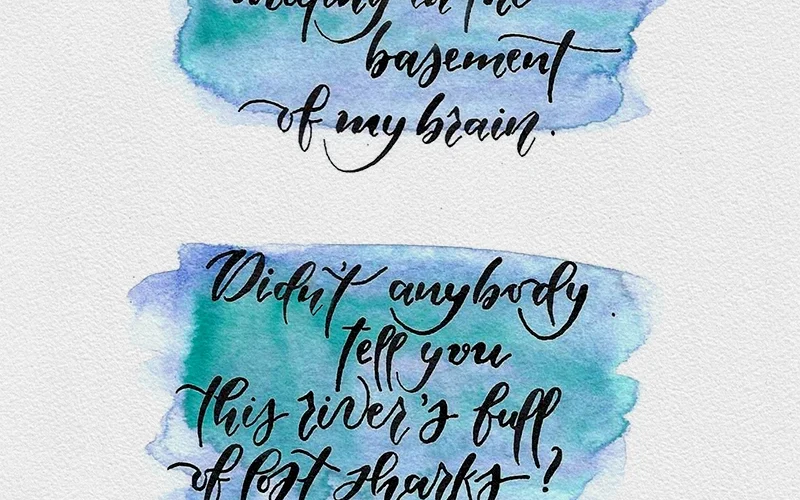 in the
basement
of my brain.
Didn't anybody
tell you
this river's full
of lost sharks?